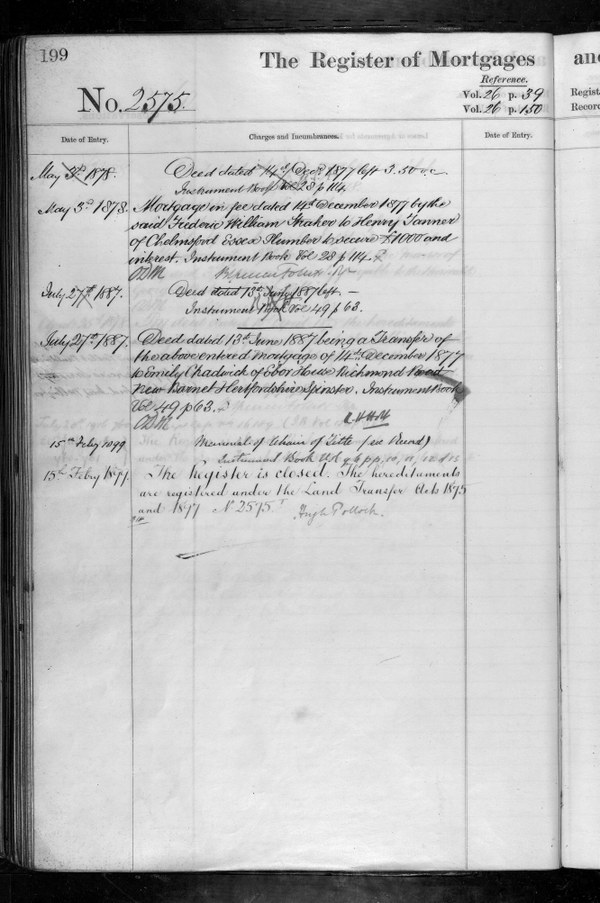 199
The Register of Mortgages
and
Reference.
No. 2575.
Vol. 26 p. 39
Vol. 26 p. 150
Regist
Recor
Date of Entry.
Charges and Incumbrances.
Date of Entry.
May 3rd 1878.
Deed dated 14th Decr 1877 left 3.50
Instrument Book Vol 28 p 114.
May 3rd 1878.
Mortgage in fee dated 14th December 1877 by the
said Frederic William Shaker to Henry Tanner
of Chelmsford Essex Plumber to secure £1000 and
interest. Instrument Book Vol 28 p 114.
July 27th 1887.
Deed dated 13th June 1887 left —
Instrument Book Vol 49 p 63.
July 27th 1887.
Deed dated 13th June 1887 being a Transfer of
the above entered mortgage of 14th December 1877
to Emily Chadwick of Ebor House Richmond Road
New Barnet Hertfordshire Spinster. Instrument Book
Vol 49 p 63.
R H Holt
15th Feby 1899
Memorial of Chain of Title (see Record)
Instrument Book Vol 96 pp. 10, 11, 12 & 13
15th Feby 1899.
The Register is closed. The hereditaments
are registered under the Land Transfer Acts 1875
and 1897 No 2575.
Hugh Pollock.